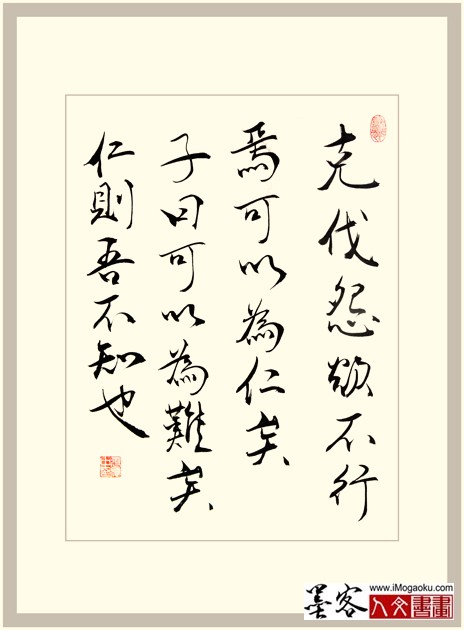 克伐怨欲不行
焉可以為仁矣
子曰可以為難矣
仁則吾不知也
墨客
www.iMogaoku.com
人文書畫